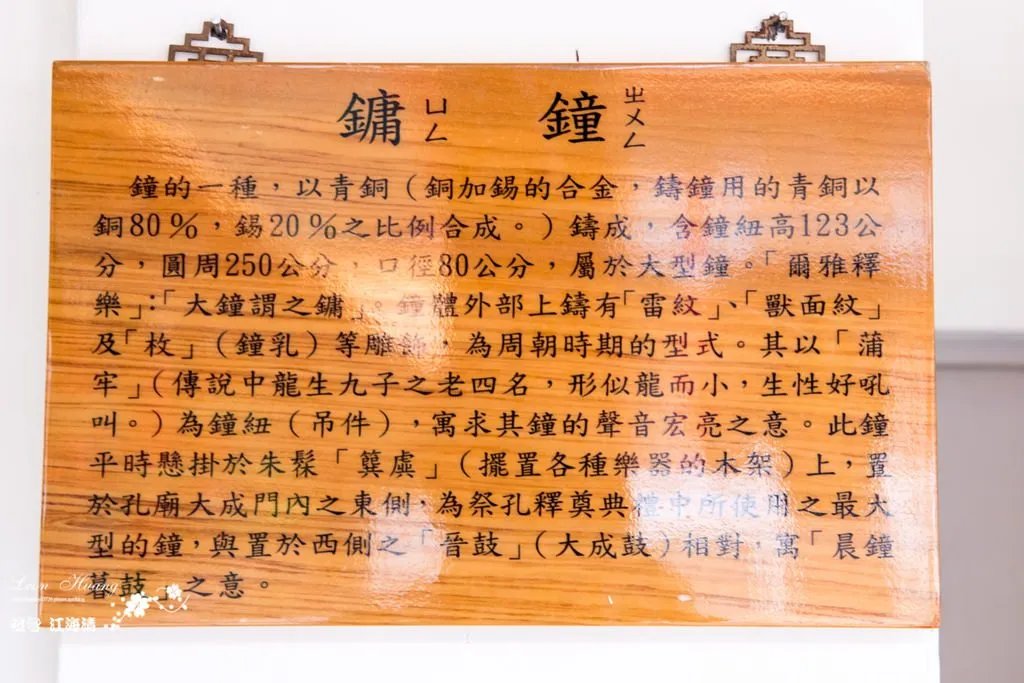 鏞ㄩㄥ 鐘ㄓㄨㄥ
鐘的一種，以青銅（銅加錫的合金，鑄鐘用的青銅以
銅80％，錫20％之比例合成。）鑄成，含鐘紐高123公
分，圓周250公分，口徑80公分，屬於大型鐘。「爾雅釋
樂」：「大鐘謂之鏞」。鐘體外部上鑄有「雷紋」、「獸面紋」
及「枚」（鐘乳）等雕飾，為周朝時期的型式。其以「蒲
牢」（傳說中龍生九子之老四名，形似龍而小，生性好吼
叫。）為鐘紐（吊件），寓求其鐘的聲音宏亮之意。此鐘
平時懸掛於朱髹「簨虡」（擺置各種樂器的木架）上，置
於孔廟大成門內之東側，為祭孔釋奠典禮中所使用之最大
型的鐘，與置於西側之「晉鼓」（大成鼓）相對，寓「晨鐘
暮鼓」之意。
Leon Huang